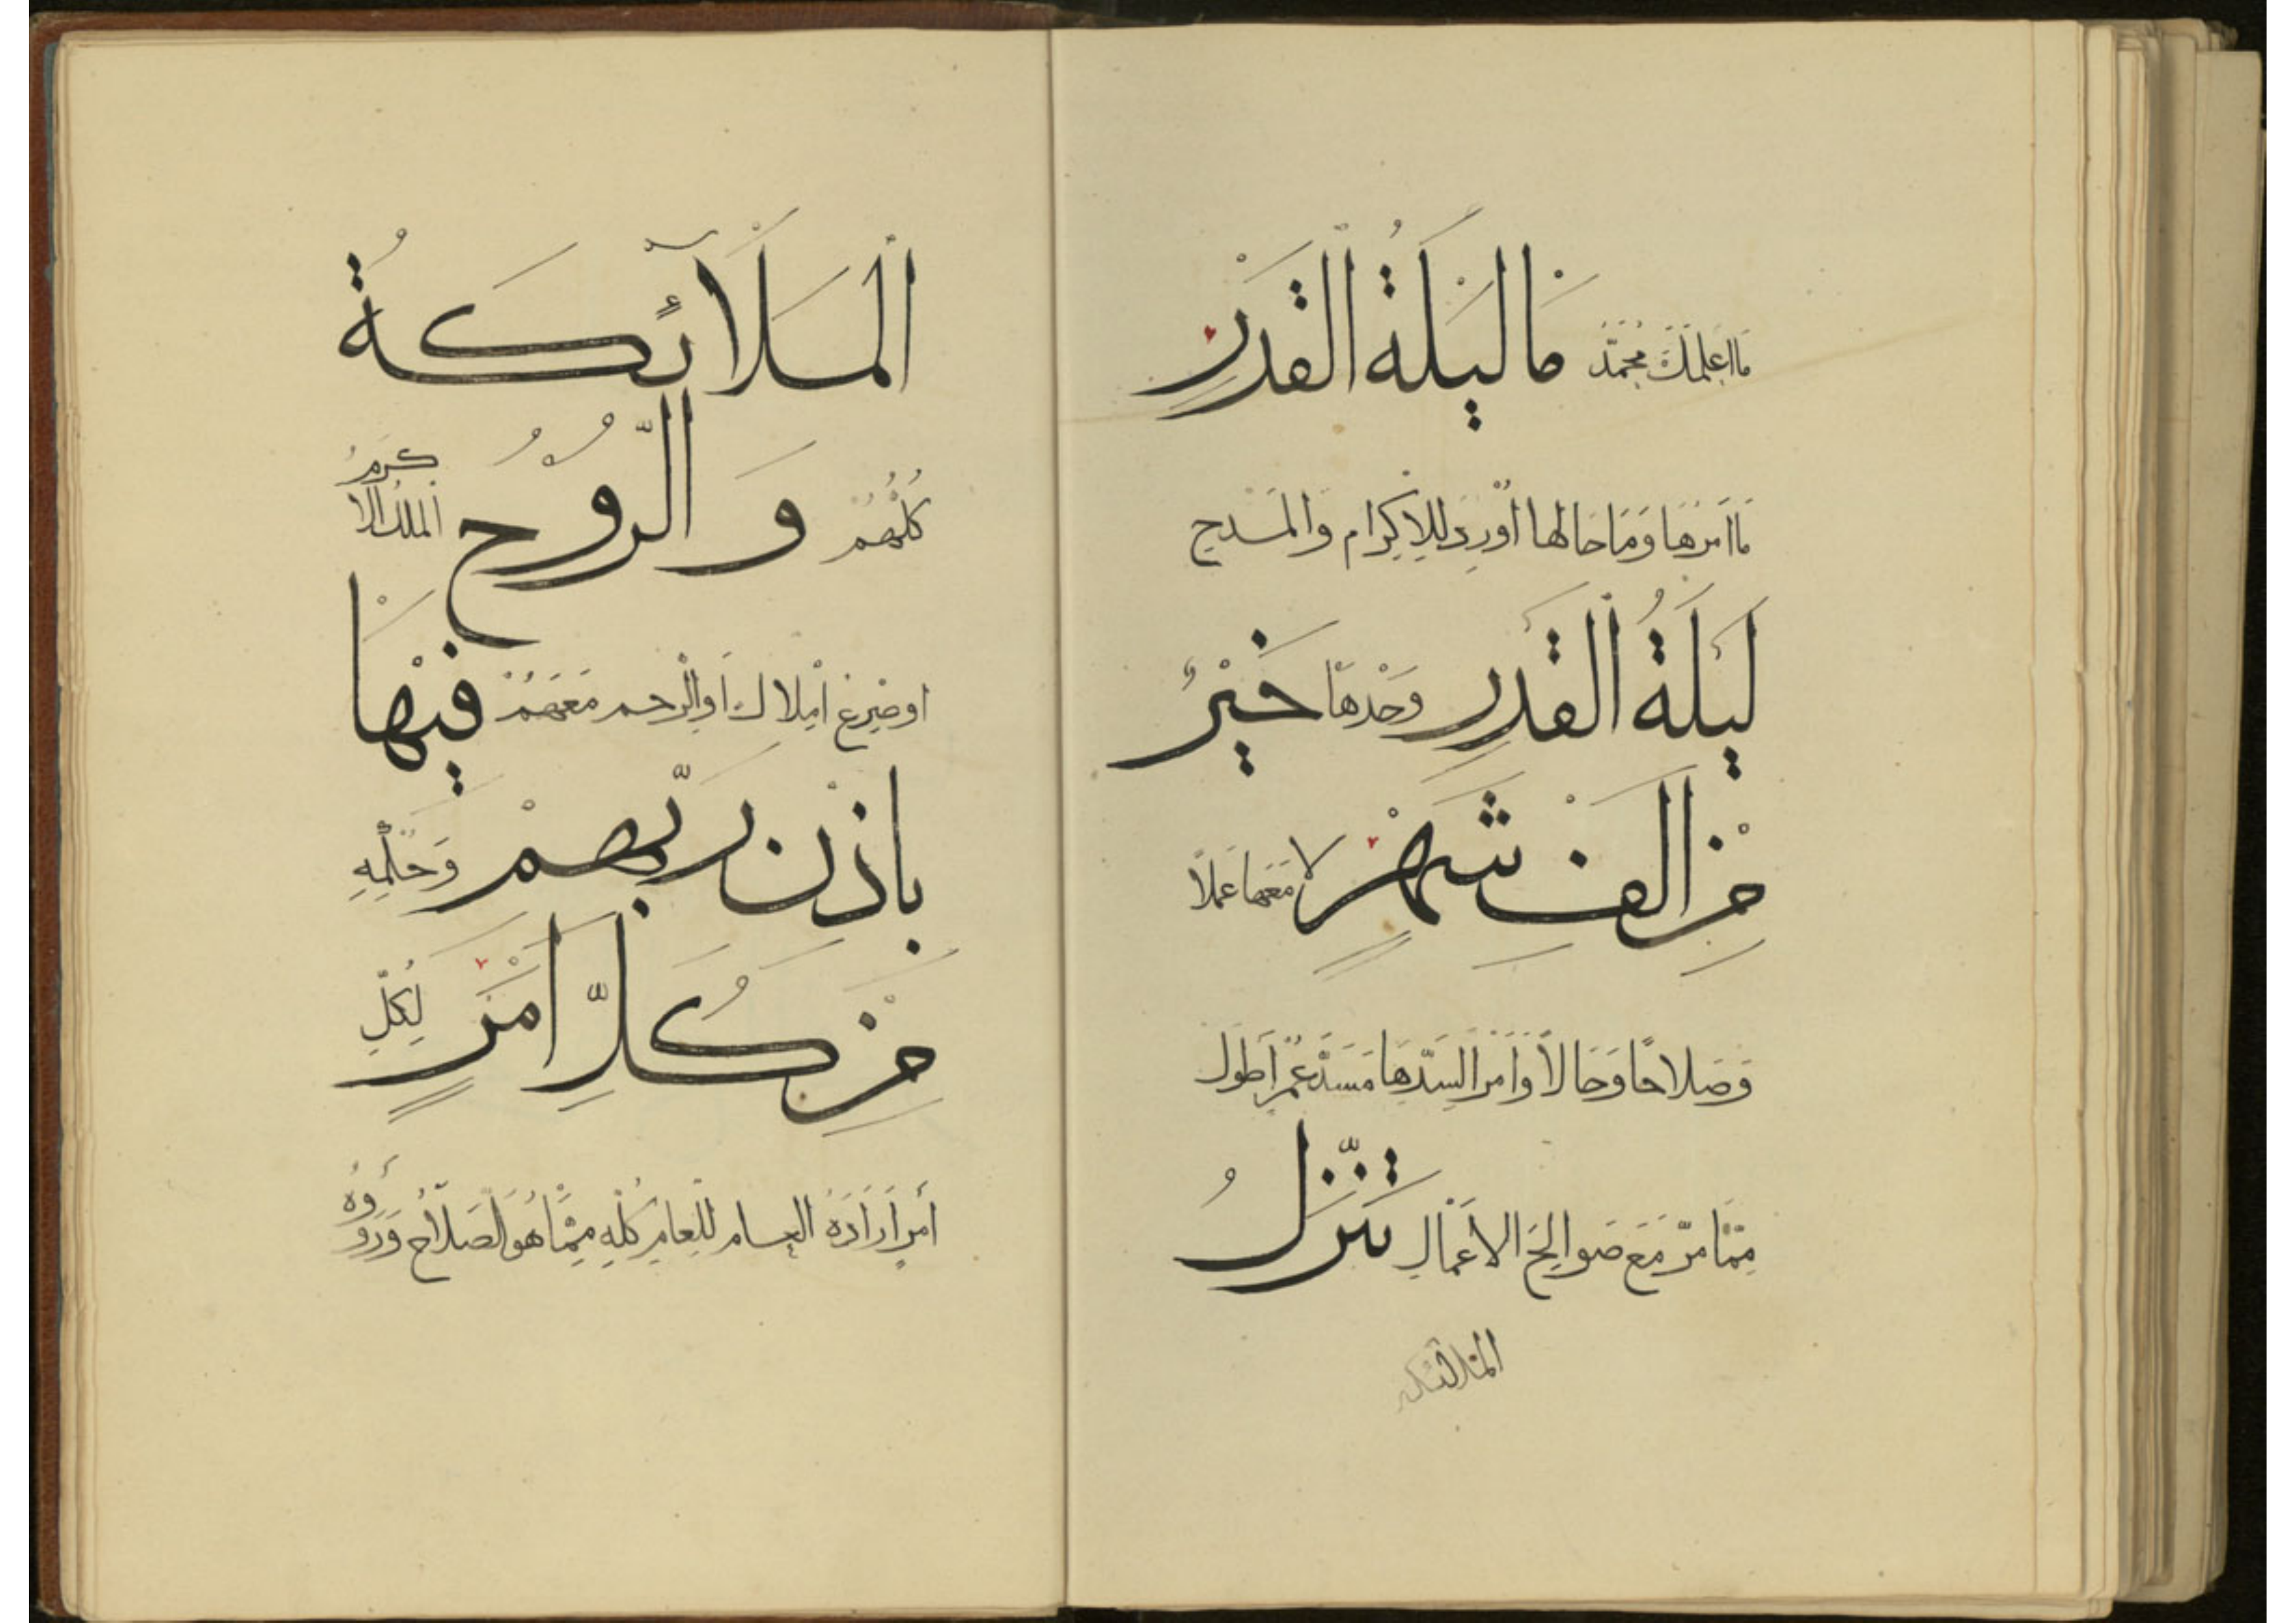 مَا لَيْلَةُ الْقَدْرِ مَا اعلمك محمد
مَا أمرها وَمَا حَالها أورد للإكرام والمدح
لَيْلَةُ الْقَدْرِ وَحْدهَا خَيْرٌ
مِنْ الْفِ شَهْرٍ لا معها عملا
وَصلاحًا وَحَالًا وَأمر السدها مسد عمر اطول
مِمَّا مرّ مَعَ صَوالِح الأعمال تَنَزَّلُ
الملائكة
الْمَلَآئِكَةُ
كُلّهُمْ وَالرُّوحُ الملك الا كرم
او املاك او الرحم معهم فِيهَا
بِاذْنِ رَبِّهِمْ وَحكمه
مِنْ كُلِّ امْرٍ لِكُلِّ
أمر أراده العام كله مما هو الصلاح